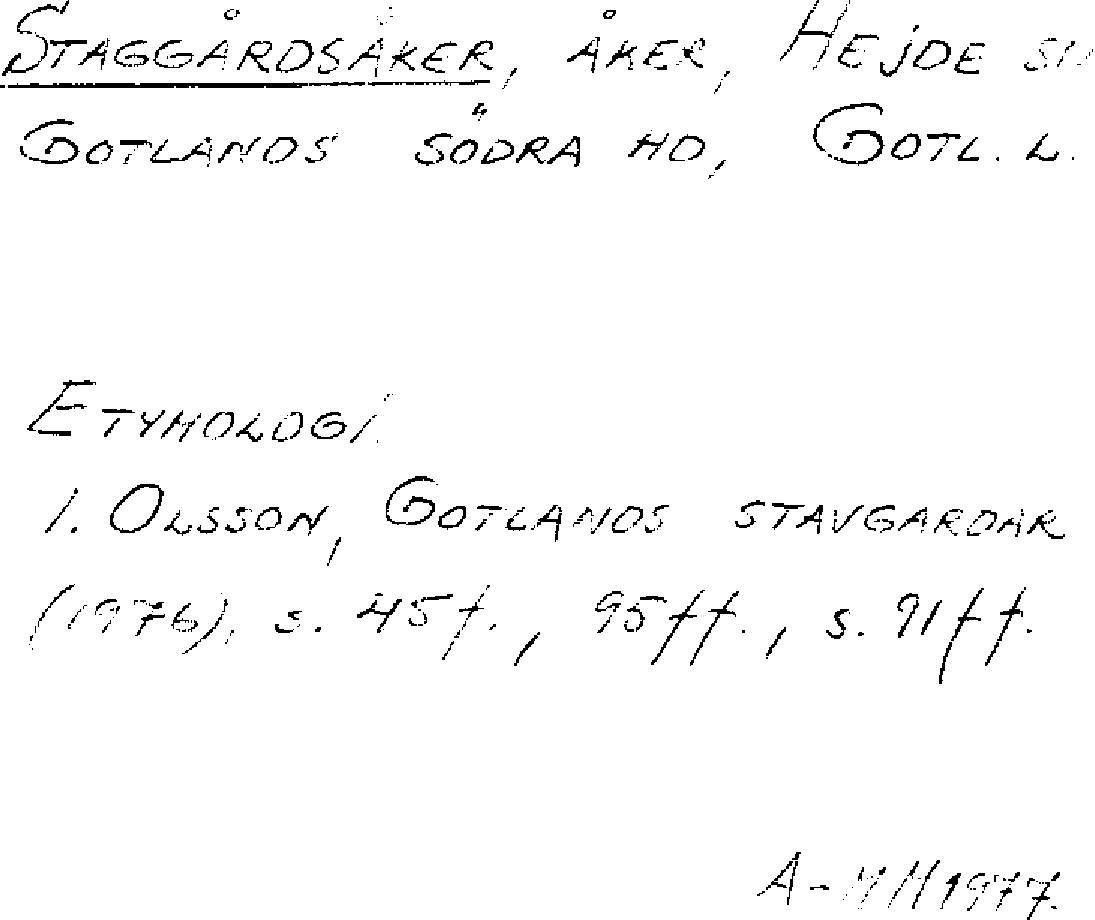 STAGGÅRDSÅKER, ÅKER, HEJDE SN
GOTLANDS SÖDRA HD, GOTL. L.
ETYMOLOGI.
I. OLSSON, GOTLANDS STAVGARDAR
(1976), s. 45f., 95ff., s. 91ff.
A-MH 1977.